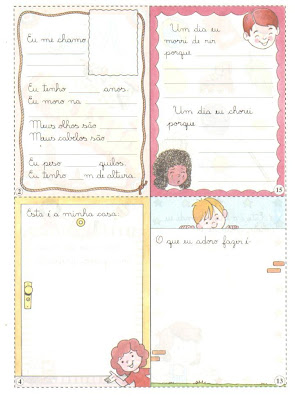 Eu me chamo
Eu tenho anos.
Eu moro na
Meus olhos são
Meus cabelos são
Eu peso quilos.
Eu tenho m de altura.
2
Um dia eu
morri de rir
porque
Um dia eu chorei
porque
15
Esta é a minha casa:
4
O que eu adoro fazer é
13